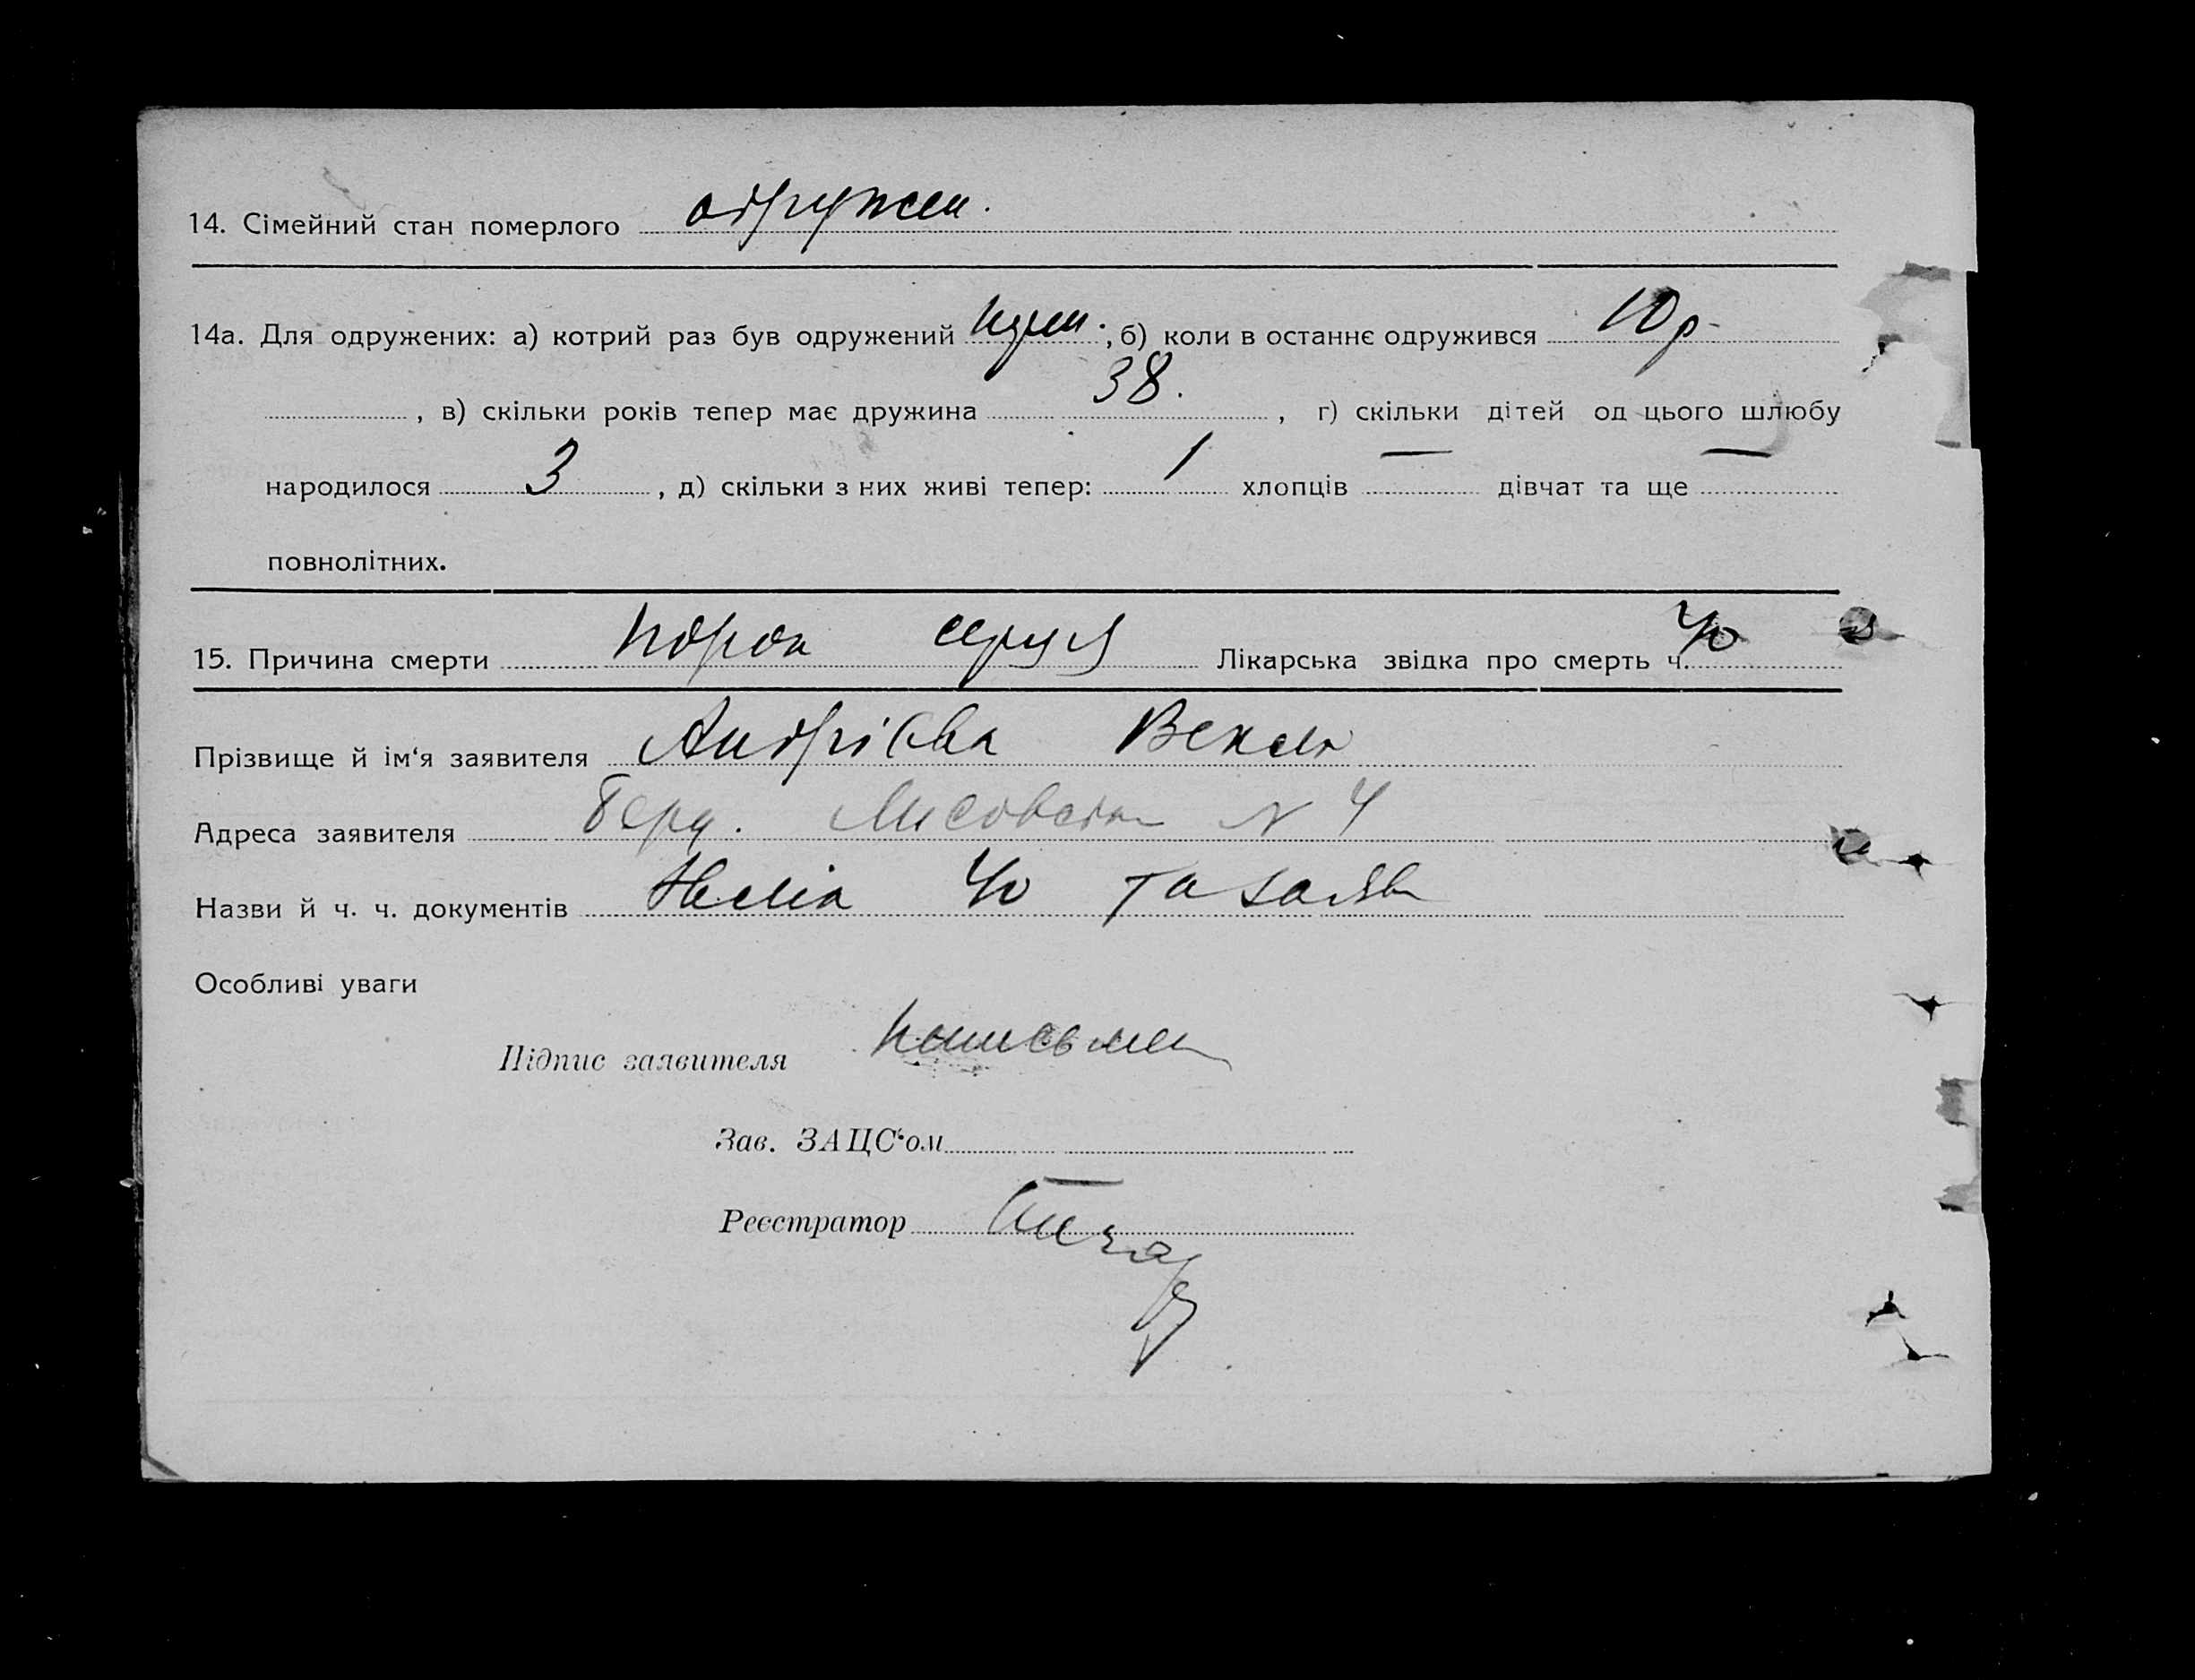 14. Сімейний стан померлого одружен.
14а. Для одружених: а) котрий раз був одружений , б) коли в останнє одружився 10 р.
, в) скільки років тепер має дружина 38. , г) скільки дітей од цього шлюбу
народилося 3 , д) скільки з них живі тепер: 1 хлопців — дівчат та ще —
повнолітних.
15. Причина смерти порок серця Лікарська звідка про смерть ч. 40
Прізвище й ім‘я заявителя Андрієва
Адреса заявителя Берд. N 4
Назви й ч. ч. документів 40 та заява
Особливі уваги
Підпис заявителя
Зав. ЗАЦС‘ом —
Реєстратор